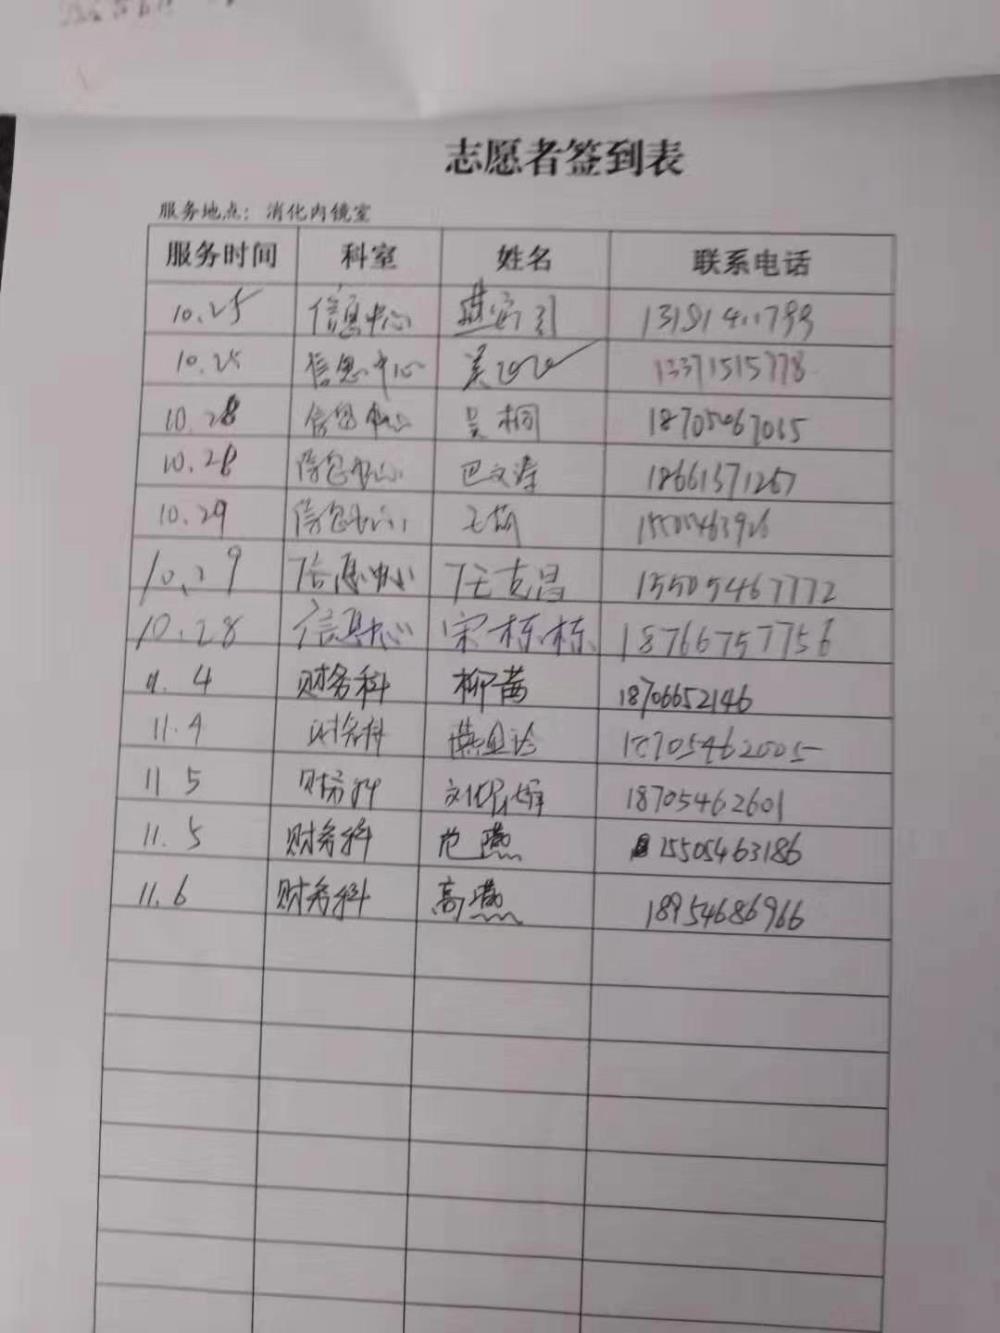 志愿者签到表
服务地点：消化内镜室
服务时间 科室 姓名 联系电话
10.25 信息中心
10.25 信息中心 13371515778
10.28 信息中心 吴桐 18705067065
10.28 信息中心 巴文涛 18661371267
10.29 信息中心
10.29 信息中心 任克昌 15505467772
10.28 信息中心 宋栋栋 18766757756
11.4 财务科 柳苗 18706652146
11.4 财务科
11.5 财务科 18705462601
11.5 财务科 范燕 15505463186
11.6 财务科 高燕 18954686966